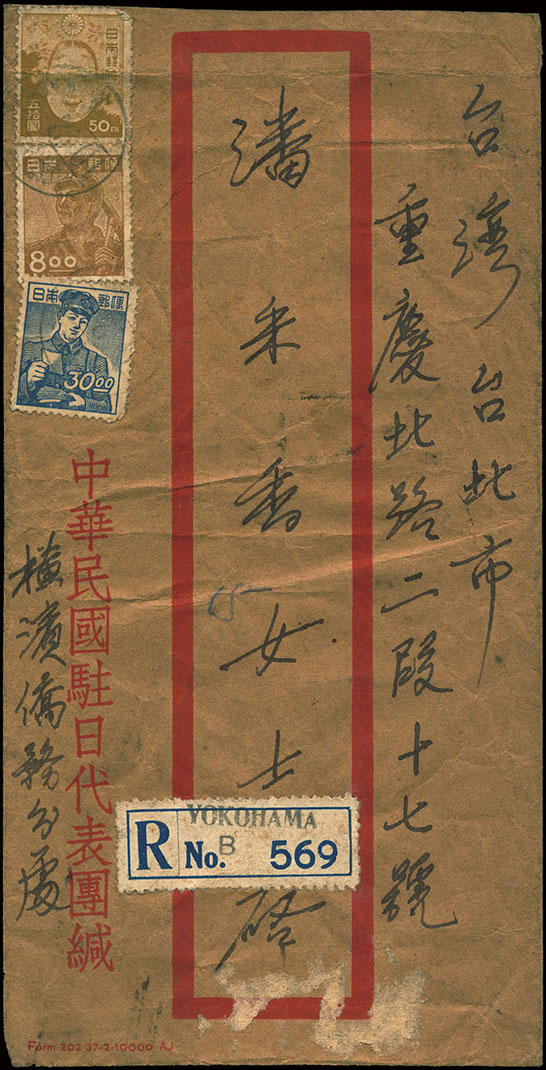 台灣台北市
重慶北路二段十七號
潘米香女士啓
中華民國駐日代表團緘
橫濱僑務分處
日本郵便
五拾圓
50 en
日本郵便
8.00
日本郵便
30.00
YOKOHAMA
R No. B 569
Form 202 37-2-10000 AJ